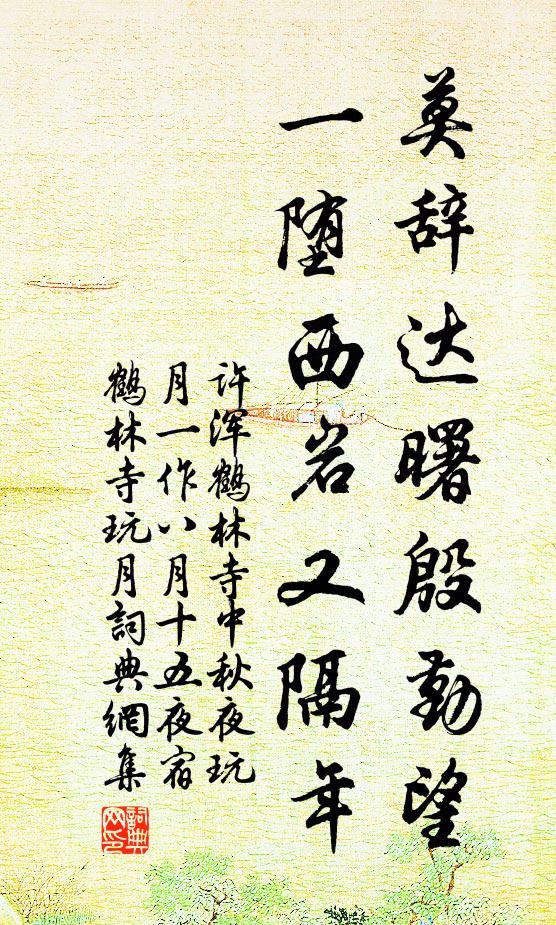 莫辞达曙殷勤望
一堕西岩又隔年
许浑鹤林寺中秋夜玩
月一作八月十五夜宿
鹤林寺玩月詞典網集
詞典
网印